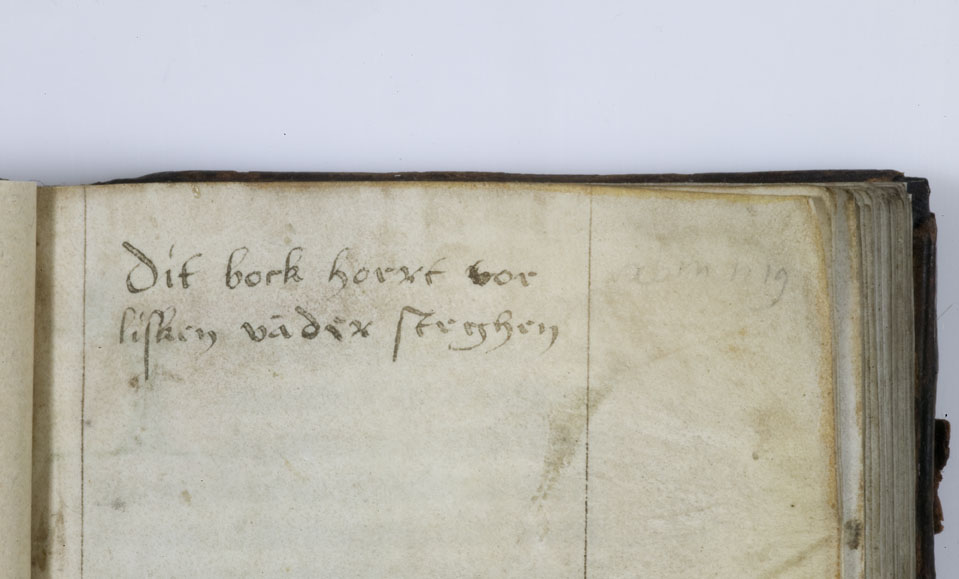 Dit boek hoert voe
lisken vā der steghen
19